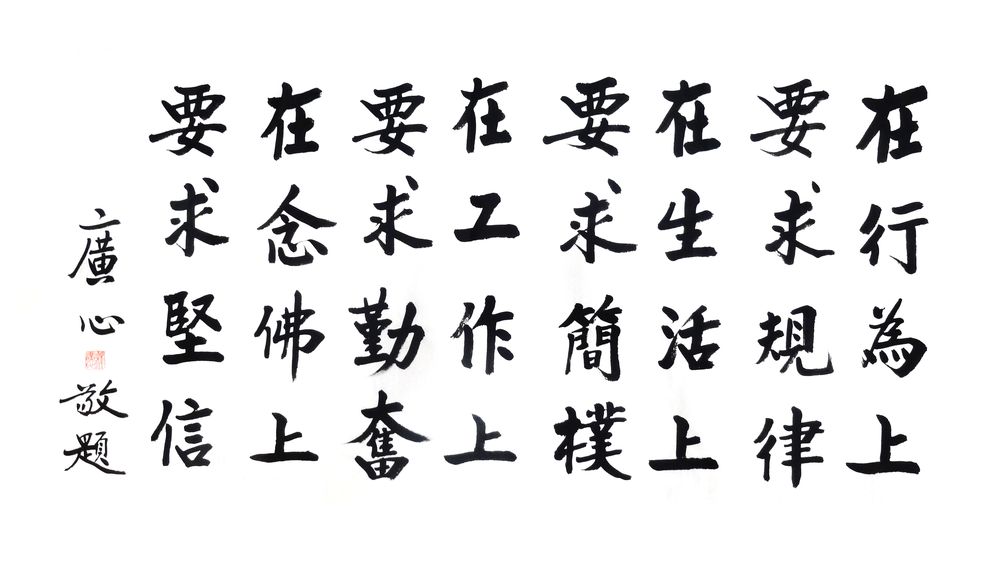 在行為上
要求規律
在生活上
要求簡樸
在工作上
要求勤奮
在念佛上
要求堅信
廣心
敬題